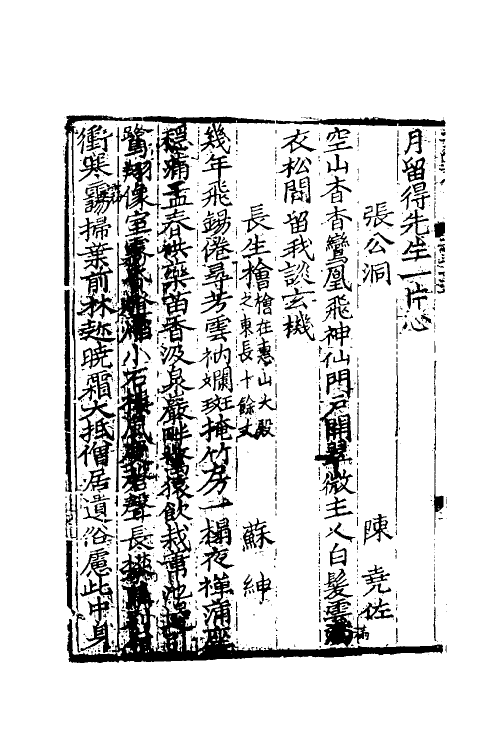 月留得先生一片心
張公洞　陳堯佐
空山杳杳鸞鳳飛神仙門戶開翠微主人白髮雲
衣松間留我談玄機
長生檜檜在惠山大殿之東長十餘丈　蘇紳
幾年飛錫倦尋芳雲衲斕斑掩竹房一榻夜禪蒲座
穩滿盂春供藥苗香汲泉巖畔驚猿飲栽葦池邊
鷺翔像室小石聲長
衝寒靄掃葉前林趂曉霜大抵僧居遺俗慮此中身